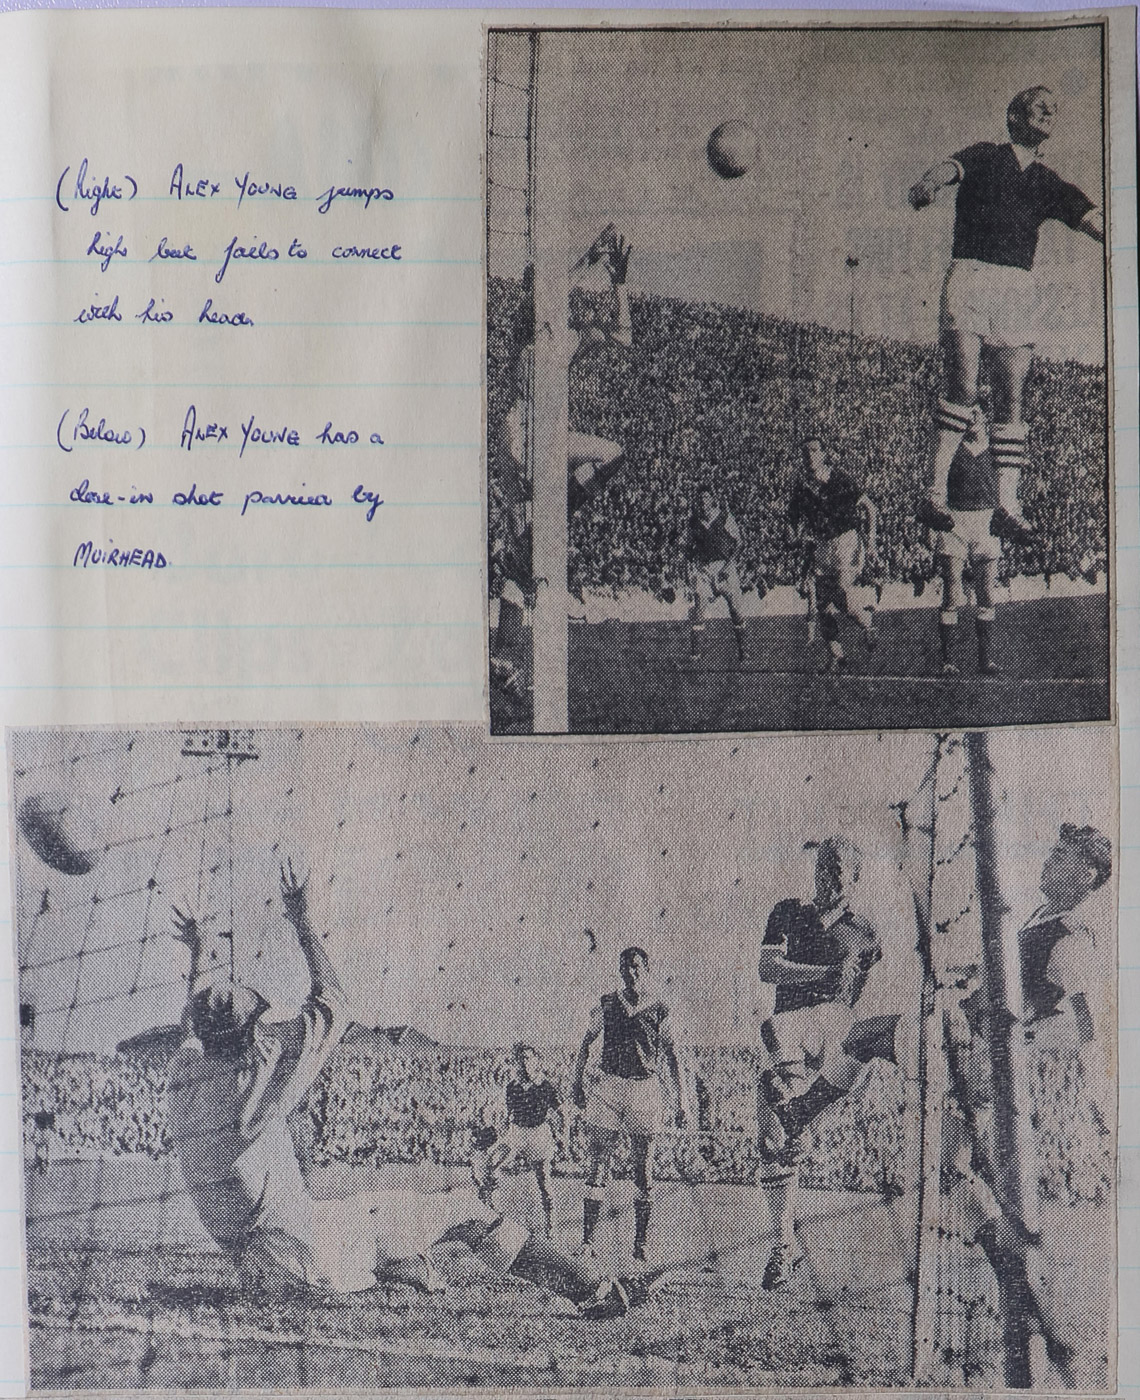 (Right) ALEX YOUNG jumps
high but fails to connect
with his head.
(Below) ALEX YOUNG has a
close-in shot parried by
MUIRHEAD.